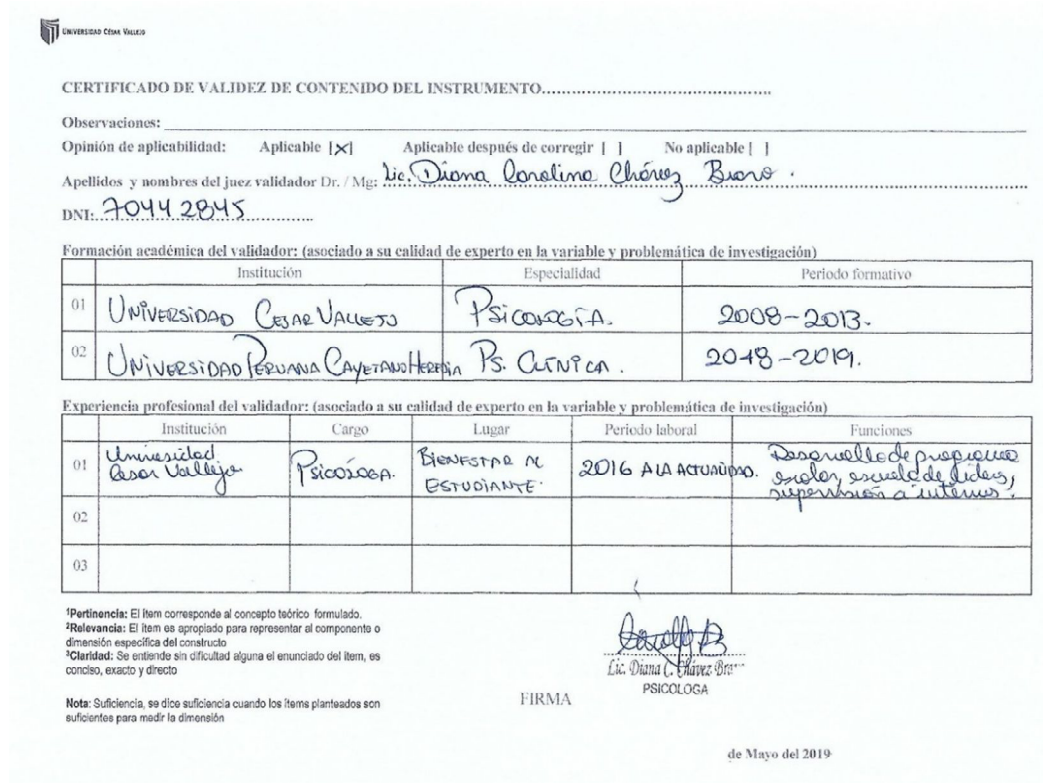 UNIVERSIDAD CÉSAR VALLEJO
CERTIFICADO DE VALIDEZ DE CONTENIDO DEL INSTRUMENTO..........................................
Observaciones:
Opinión de aplicabilidad: Aplicable [X] Aplicable después de corregir [ ] No aplicable [ ]
Apellidos y nombres del juez validador Dr. / Mg: Lic. Diana Carolina Chávez
DNI: 70442845
Formación académica del validador: (asociado a su calidad de experto en la variable y problemática de investigación)
Institución Especialidad Periodo formativo
01 UNIVERSIDAD CESAR VALLEJO PSICOLOGÍA. 2008-2013.
02 UNIVERSIDAD PERUANA CAYETANO HEREDIA PS. CLÍNICA. 2018-2019.
Experiencia profesional del validador: (asociado a su calidad de experto en la variable y problemática de investigación)
Institución Cargo Lugar Periodo laboral Funciones
01 Universidad Cesar Vallejo PSICÓLOGA. BIENESTAR AL ESTUDIANTE. 2016 A LA ACTUALIDAD. Desarrollo de programa escolar, escuela de líderes, supervisión a internos.
02
03
¹Pertinencia: El ítem corresponde al concepto teórico formulado.
²Relevancia: El ítem es apropiado para representar al componente o
dimensión específica del constructo
³Claridad: Se entiende sin dificultad alguna el enunciado del ítem, es
conciso, exacto y directo
Lic. Diana C. Chávez
PSICOLOGA
FIRMA
Nota: Suficiencia, se dice suficiencia cuando los ítems planteados son
suficientes para medir la dimensión
de Mayo del 2019